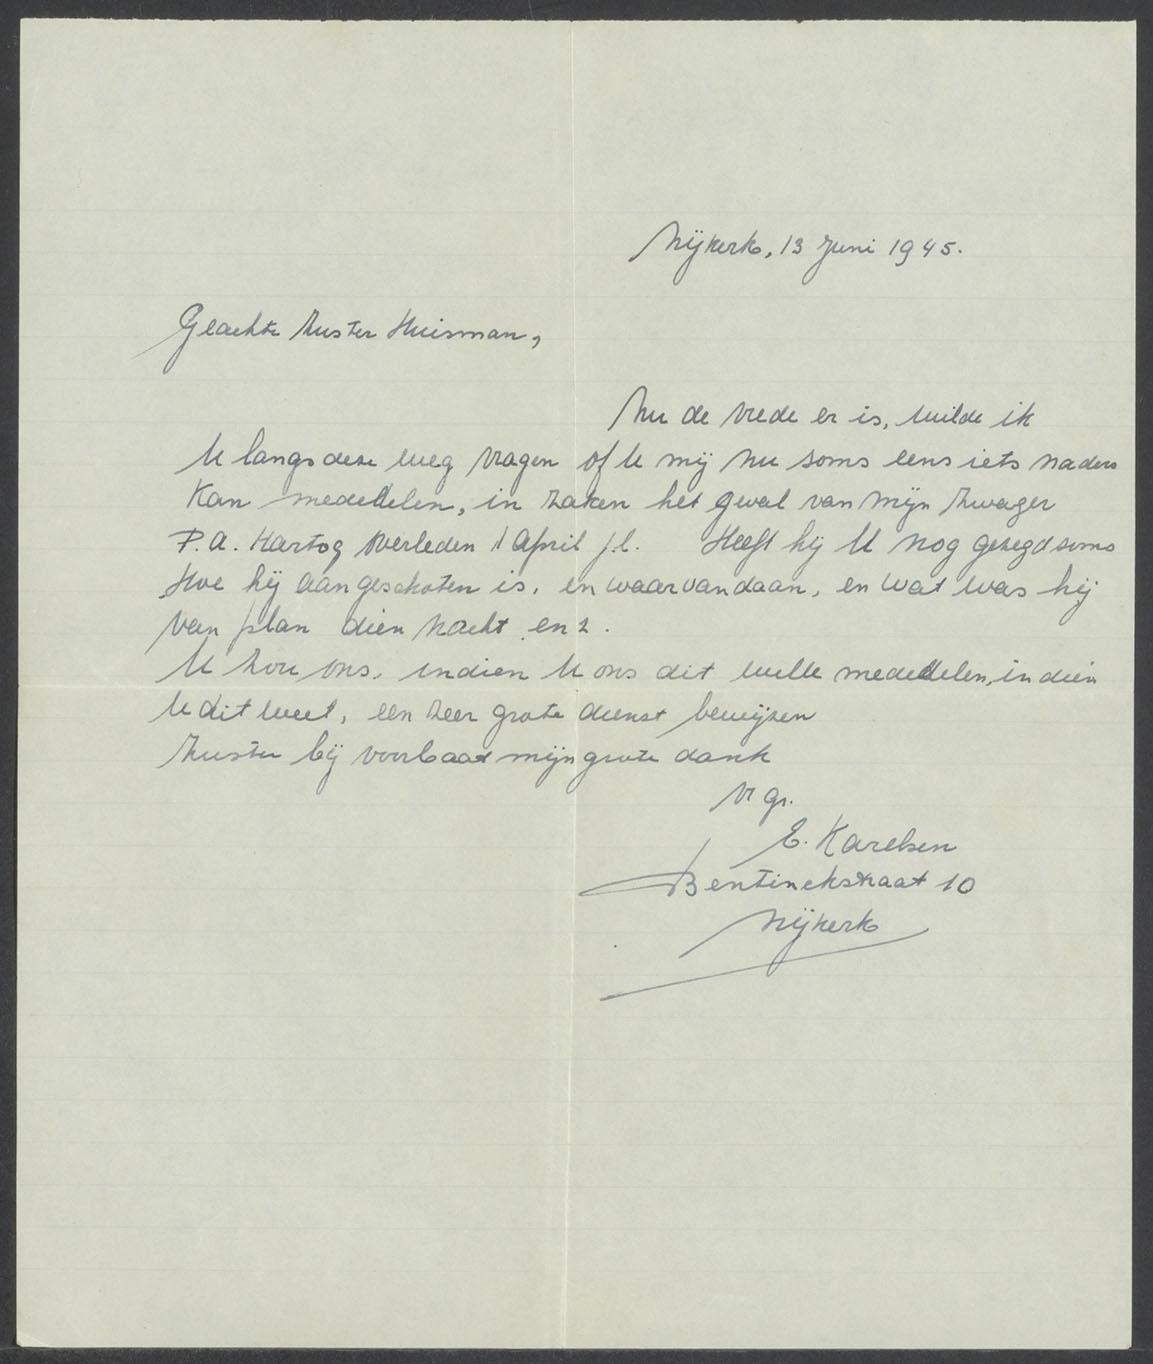 Nijkerk, 13 Juni 1945.
Geachte Zuster Huisman,
Nu de vrede er is, wilde ik
U langs deze weg vragen of U mij nu soms eens iets naders
kan mededelen, in zaken het geval van mijn Zwager
P.A. Hartog overleden 1 April j.l. Heeft hij U nog gezegd soms
Hoe hij aangeschoten is, en waar vandaan, en wat was hij
van plan dien nacht enz.
U zou ons, indien U ons dit wille mededelen, indien
U dit weet, een zeer grote dienst bewijzen
Zuster bij voorbaat mijn grote dank
Vr gr.
E. Karelsen
Bentinckstraat 10
Nijkerk